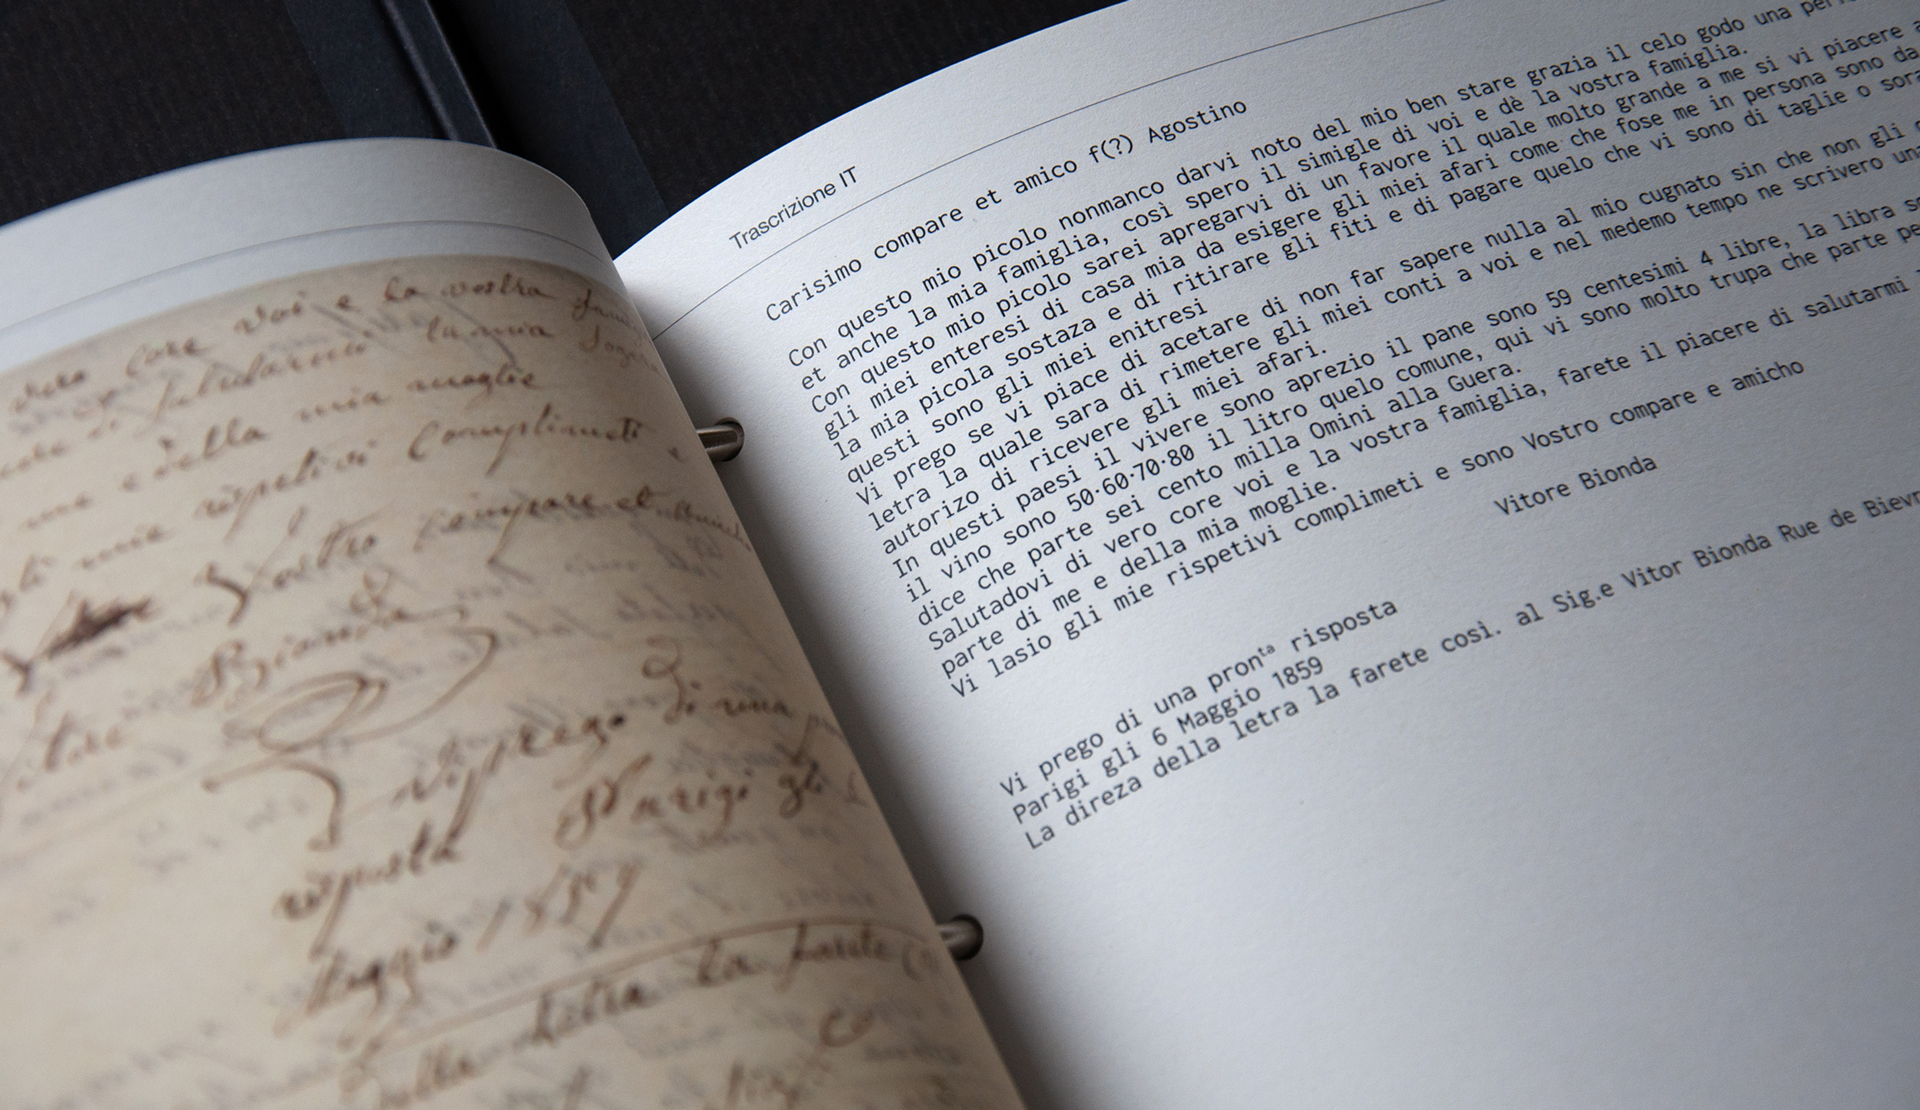 vero core voi e la vostra
Salutarmi la mia
me e della mia moglie
gli mie rispetivi Complimeti e
Vostro compare et amicho
Bionda
Vi prego di una
risposta Parigi gli 6
Maggio 1859
della letra la farete
Trascrizione IT
Carisimo compare et amico f(?) Agostino
Con questo mio picolo nonmanco darvi noto del mio ben stare grazia il celo godo una
et anche la mia famiglia, così spero il simigle di voi e dè la vostra famiglia.
Con questo mio picolo sarei apregarvi di un favore il quale molto grande a me si vi piacere
gli miei enteresi di casa mia da esigere gli miei afari come che fose me in persona sono da
la mia picola sostaza e di ritirare gli fiti e di pagare quelo che vi sono di taglie o
questi sono gli miei enitresi
Vi prego se vi piace di acetare di non far sapere nulla al mio cugnato sin che non gli
letra la quale sara di rimetere gli miei conti a voi e nel medemo tempo ne scrivero
autorizo di ricevere gli miei afari.
In questi paesi il vivere sono aprezio il pane sono 59 centesimi 4 libre, la libra
il vino sono 50·60·70·80 il litro quelo comune, qui vi sono molto trupa che parte
dice che parte sei cento milla Omini alla Guera.
Salutadovi di vero core voi e la vostra famiglia, farete il piacere di salutarmi
parte di me e della mia moglie.
Vi lasio gli mie rispetivi complimeti e sono Vostro compare e amicho
Vitore Bionda
Vi prego di una pronᵗᵃ risposta
Parigi gli 6 Maggio 1859
La direza della letra la farete così. al Sig.e Vitor Bionda Rue de